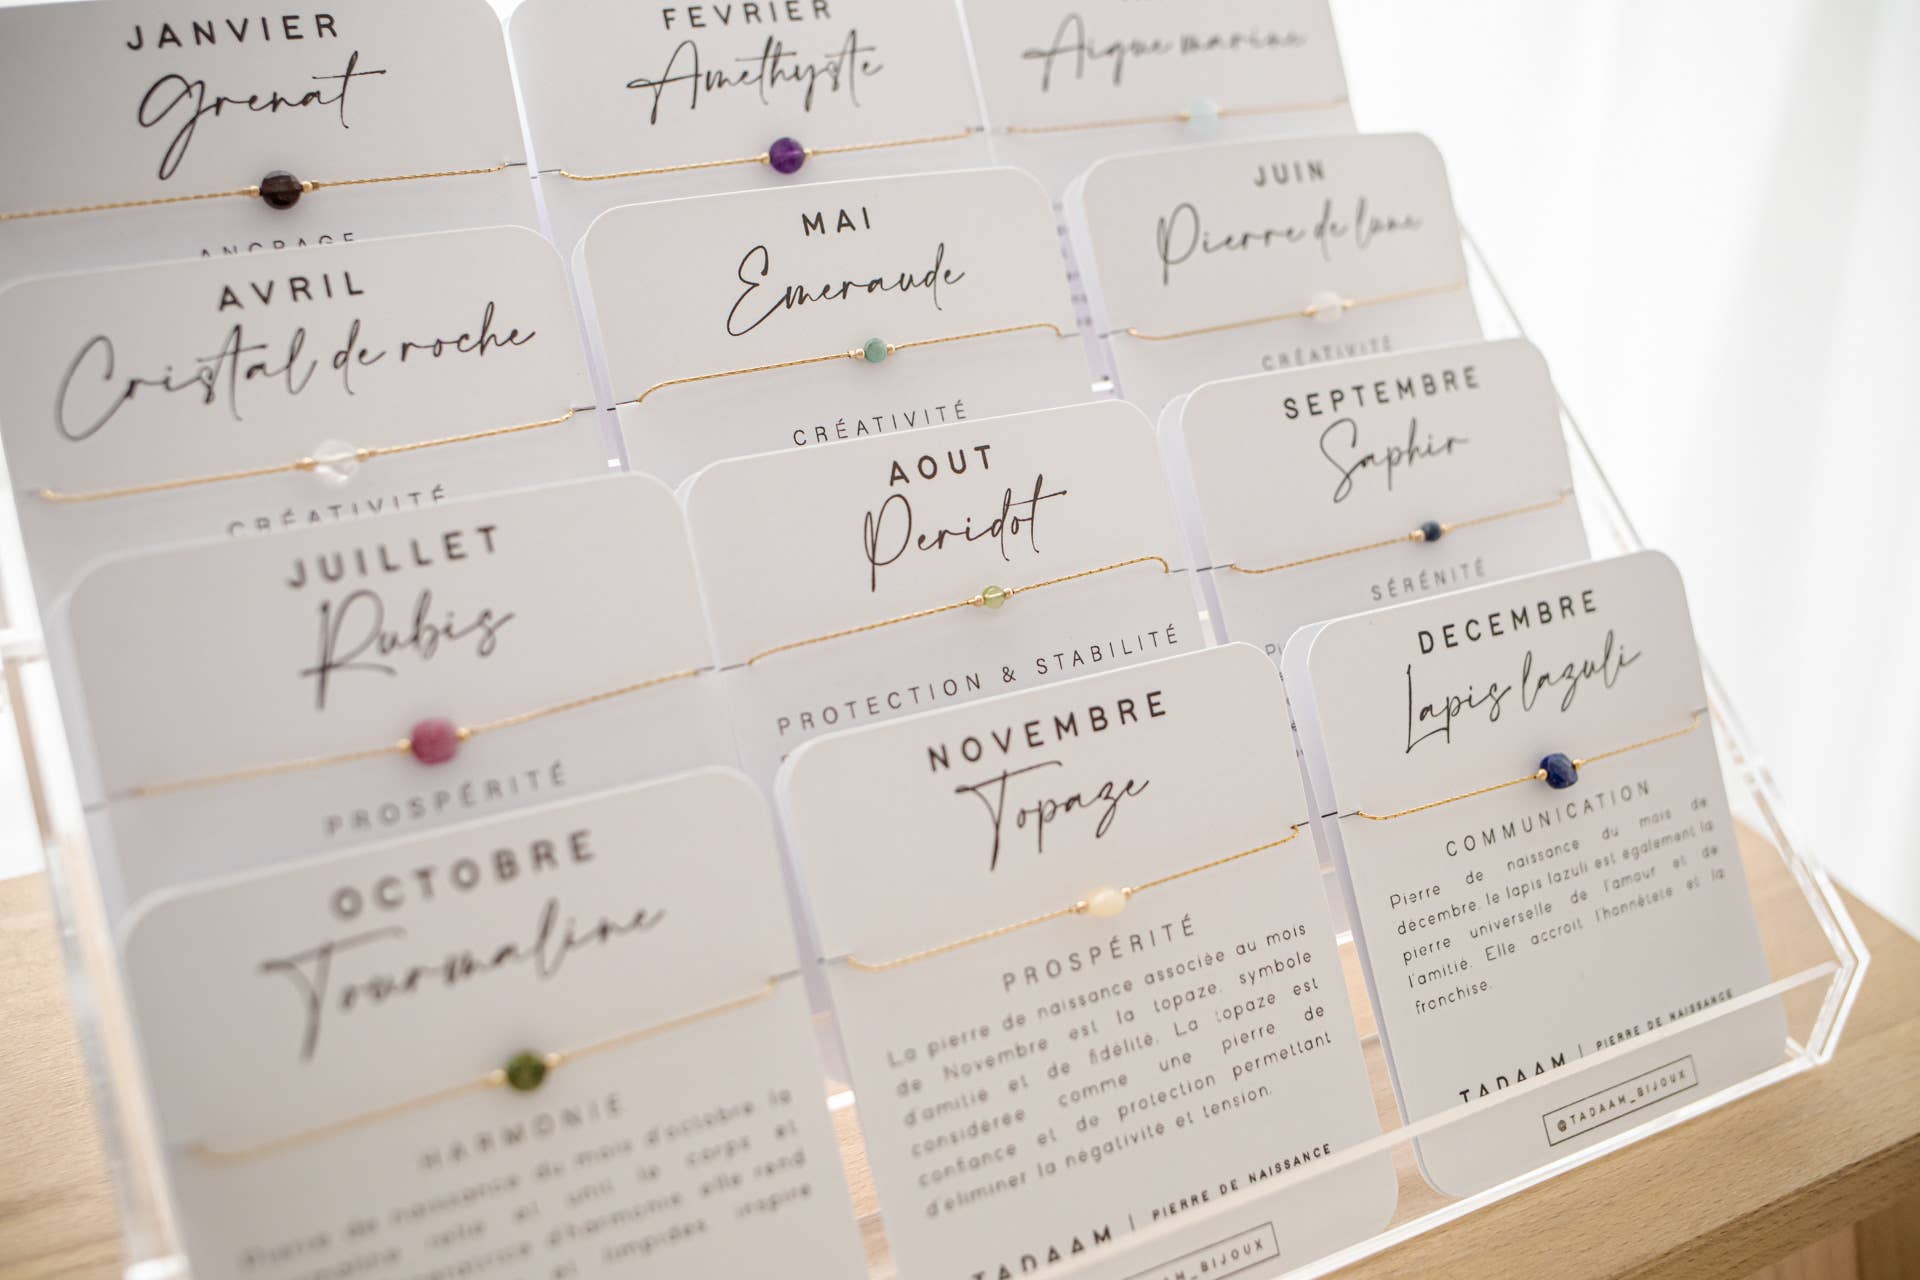 JANVIER
Grenat
ANCRAGE
FEVRIER
Améthyste
Aigue marine
AVRIL
Cristal de roche
CRÉATIVITÉ
MAI
Emeraude
CRÉATIVITÉ
JUIN
Pierre de lune
CRÉATIVITÉ
JUILLET
Rubis
PROSPÉRITÉ
AOUT
Peridot
PROTECTION & STABILITÉ
SEPTEMBRE
Saphir
SÉRÉNITÉ
OCTOBRE
Tourmaline
HARMONIE
Pierre de naissance du mois d'octobre la
relie et unit le corps et
d'harmonie elle rend
et limpides inspire
NOVEMBRE
Topaze
PROSPÉRITÉ
La pierre de naissance associée au mois
de Novembre est la topaze, symbole
d'amitié et de fidélité. La topaze est
considérée comme une pierre de
confiance et de protection permettant
d'éliminer la négativité et tension.
TADAAM | PIERRE DE NAISSANCE
M_BIJOUX
DECEMBRE
Lapis lazuli
COMMUNICATION
Pierre de naissance du mois de
décembre, le lapis lazuli est également la
pierre universelle de l'amour et de
l'amitié. Elle accroit l'honnêteté et la
franchise.
TADAAM | PIERRE DE NAISSANCE
@TADAAM_BIJOUX